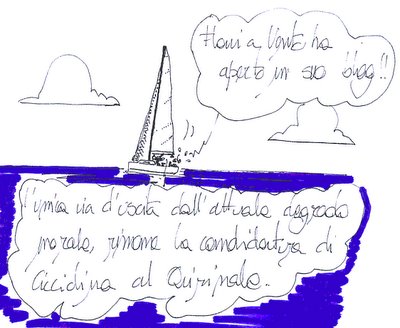 Flavia Vento ha
aperto un suo blog!!
l'unica via d'uscita dall'attuale degrado
morale, rimane la candidatura di
Cicciolina al Quirinale..